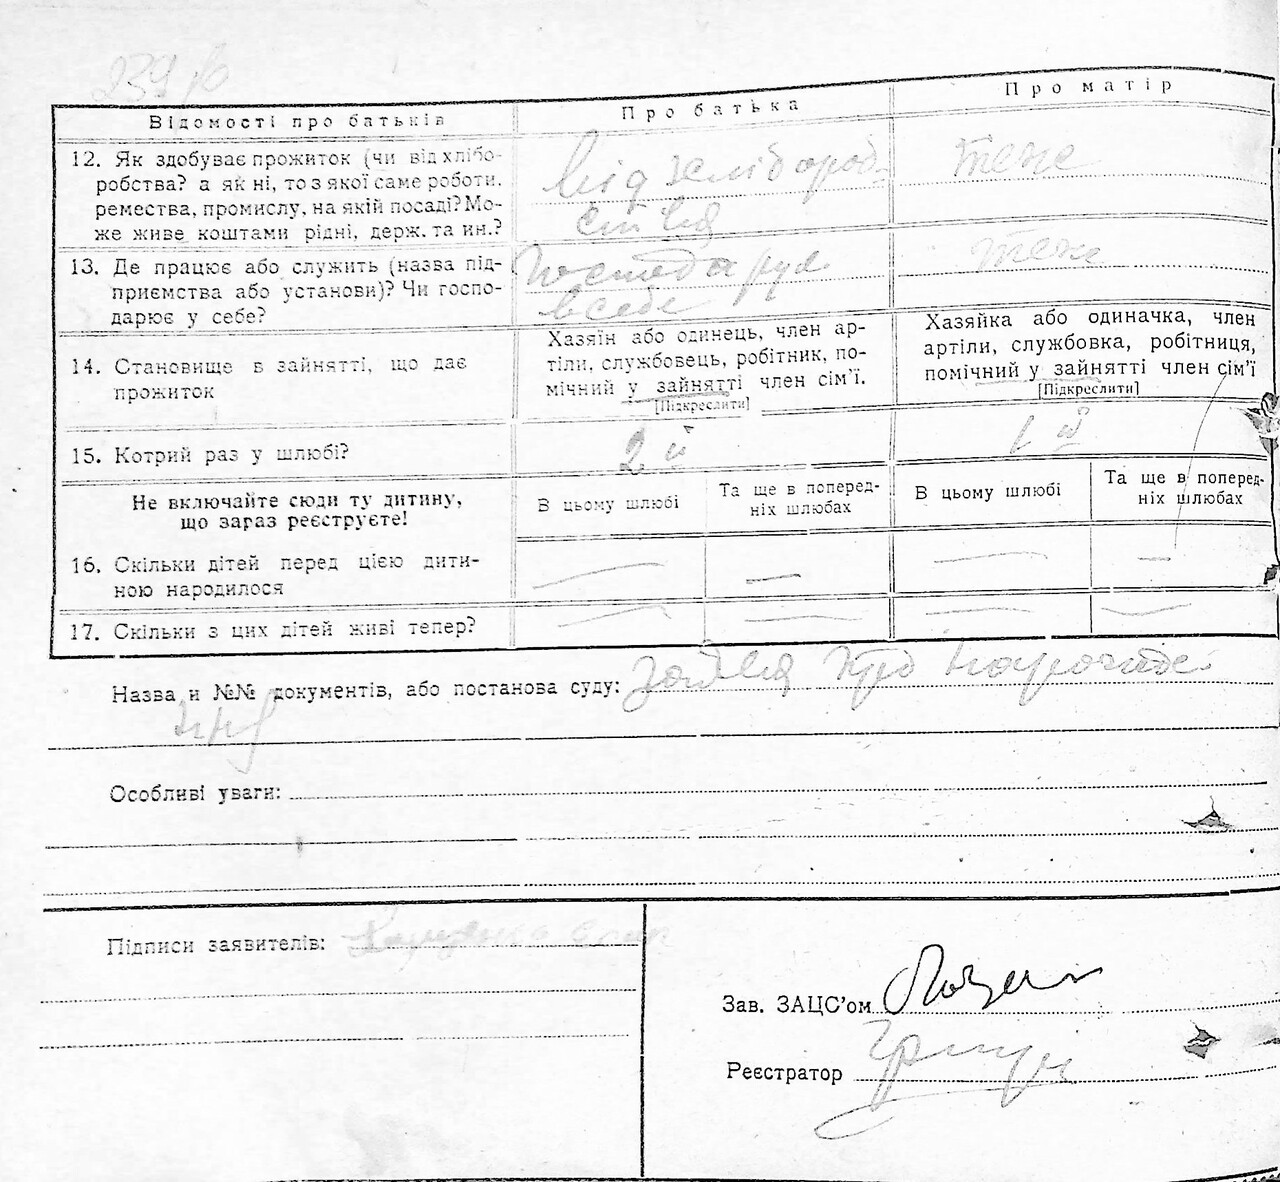 239
Відомості про батьків
Про батька
Про матір
12. Як здобуває прожиток (чи від хлібо-
робства? а як ні, то з якої саме роботи.
ремества, промислу, на якій посаді? Мо-
же живе коштами рідні, держ. та ин.?
Від
теже
13. Де працює або служить (назва під-
приємства або установи)? Чи госпо-
дарює у себе?
Господарує
в себе
теже
14. Становище в зайнятті, що дає
прожиток
Хазяїн або одинець, член ар-
тіли, службовець, робітник, по-
мічний у зайнятті член сім’ї.
[Підкреслити]
Хазяйка або одиначка, член
артіли, службовка, робітниця,
помічний у зайнятті член сім’ї
[Підкреслити]
15. Котрий раз у шлюбі?
2й
1й
Не включайте сюди ту дитину,
що зараз реєструєте!
В цьому шлюбі
Та ще в поперед-
ніх шлюбах
В цьому шлюбі
Та ще в поперед-
ніх шлюбах
16. Скільки дітей перед цією дити-
ною народилося
—
—
—
—
17. Скільки з цих дітей живі тепер?
—
—
—
—
Назва и №№ документів, або постанова суду: заява про
Особливі уваги:
Підписи заявителів:
Зав. ЗАЦС’ом
Реєстратор